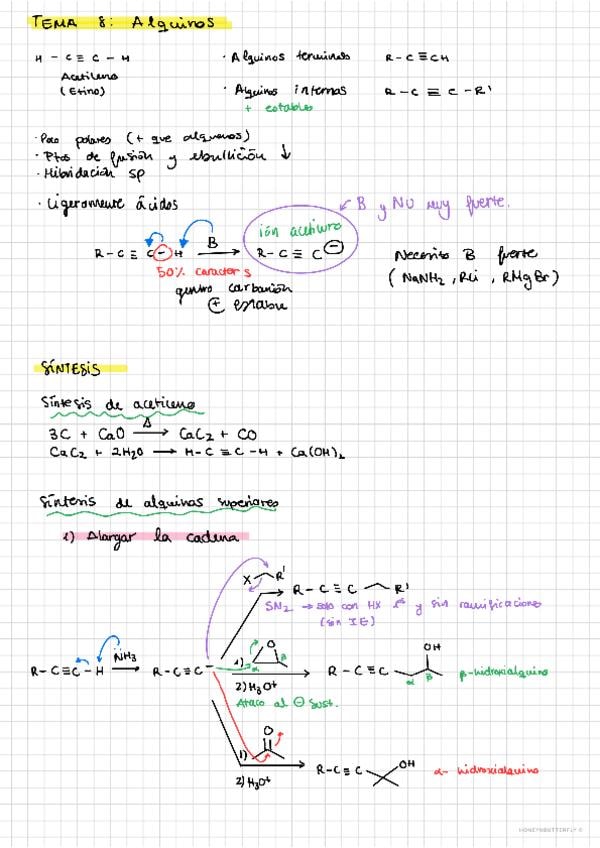 TEMA 8: Alquinos
H - C ≡ C - H
Acetileno
(Etino)
· Alquinos terminales R - C ≡ CH
· Alquinos internos R - C ≡ C - R'
+ estables
· Poco polares (+ que alquenos)
· Ptos de fusión y ebullición ↓
· Hibridación sp
· Ligeramente ácidos
B y Nu muy fuerte.
R - C ≡ C - H
B
ión acetiluro
R - C ≡ C ⊖
50% caracter s
carbanión
⊕ estable
Necesito B fuerte
(NaNH2, RLi, RMgBr)
SÍNTESIS
Síntesis de acetileno
3C + CaO →Δ CaC2 + CO
CaC2 + 2H2O → H-C≡C-H + Ca(OH)2
Síntesis de alquinos superiores
1) Alargar la cadena
X R'
R - C ≡ C R'
SN2 → solo con HX 1º y sin ramificaciones
(sin IE)
R-C≡C-H
NH3
R-C≡C -
1) O
α β
2) H3O+
Ataco al ⊖ sust.
OH
R - C≡C
α β
β-hidroxialquino
O
1)
2) H3O+
R-C≡C OH
α- hidroxialquino
HONEYNBUTTERFLY ©